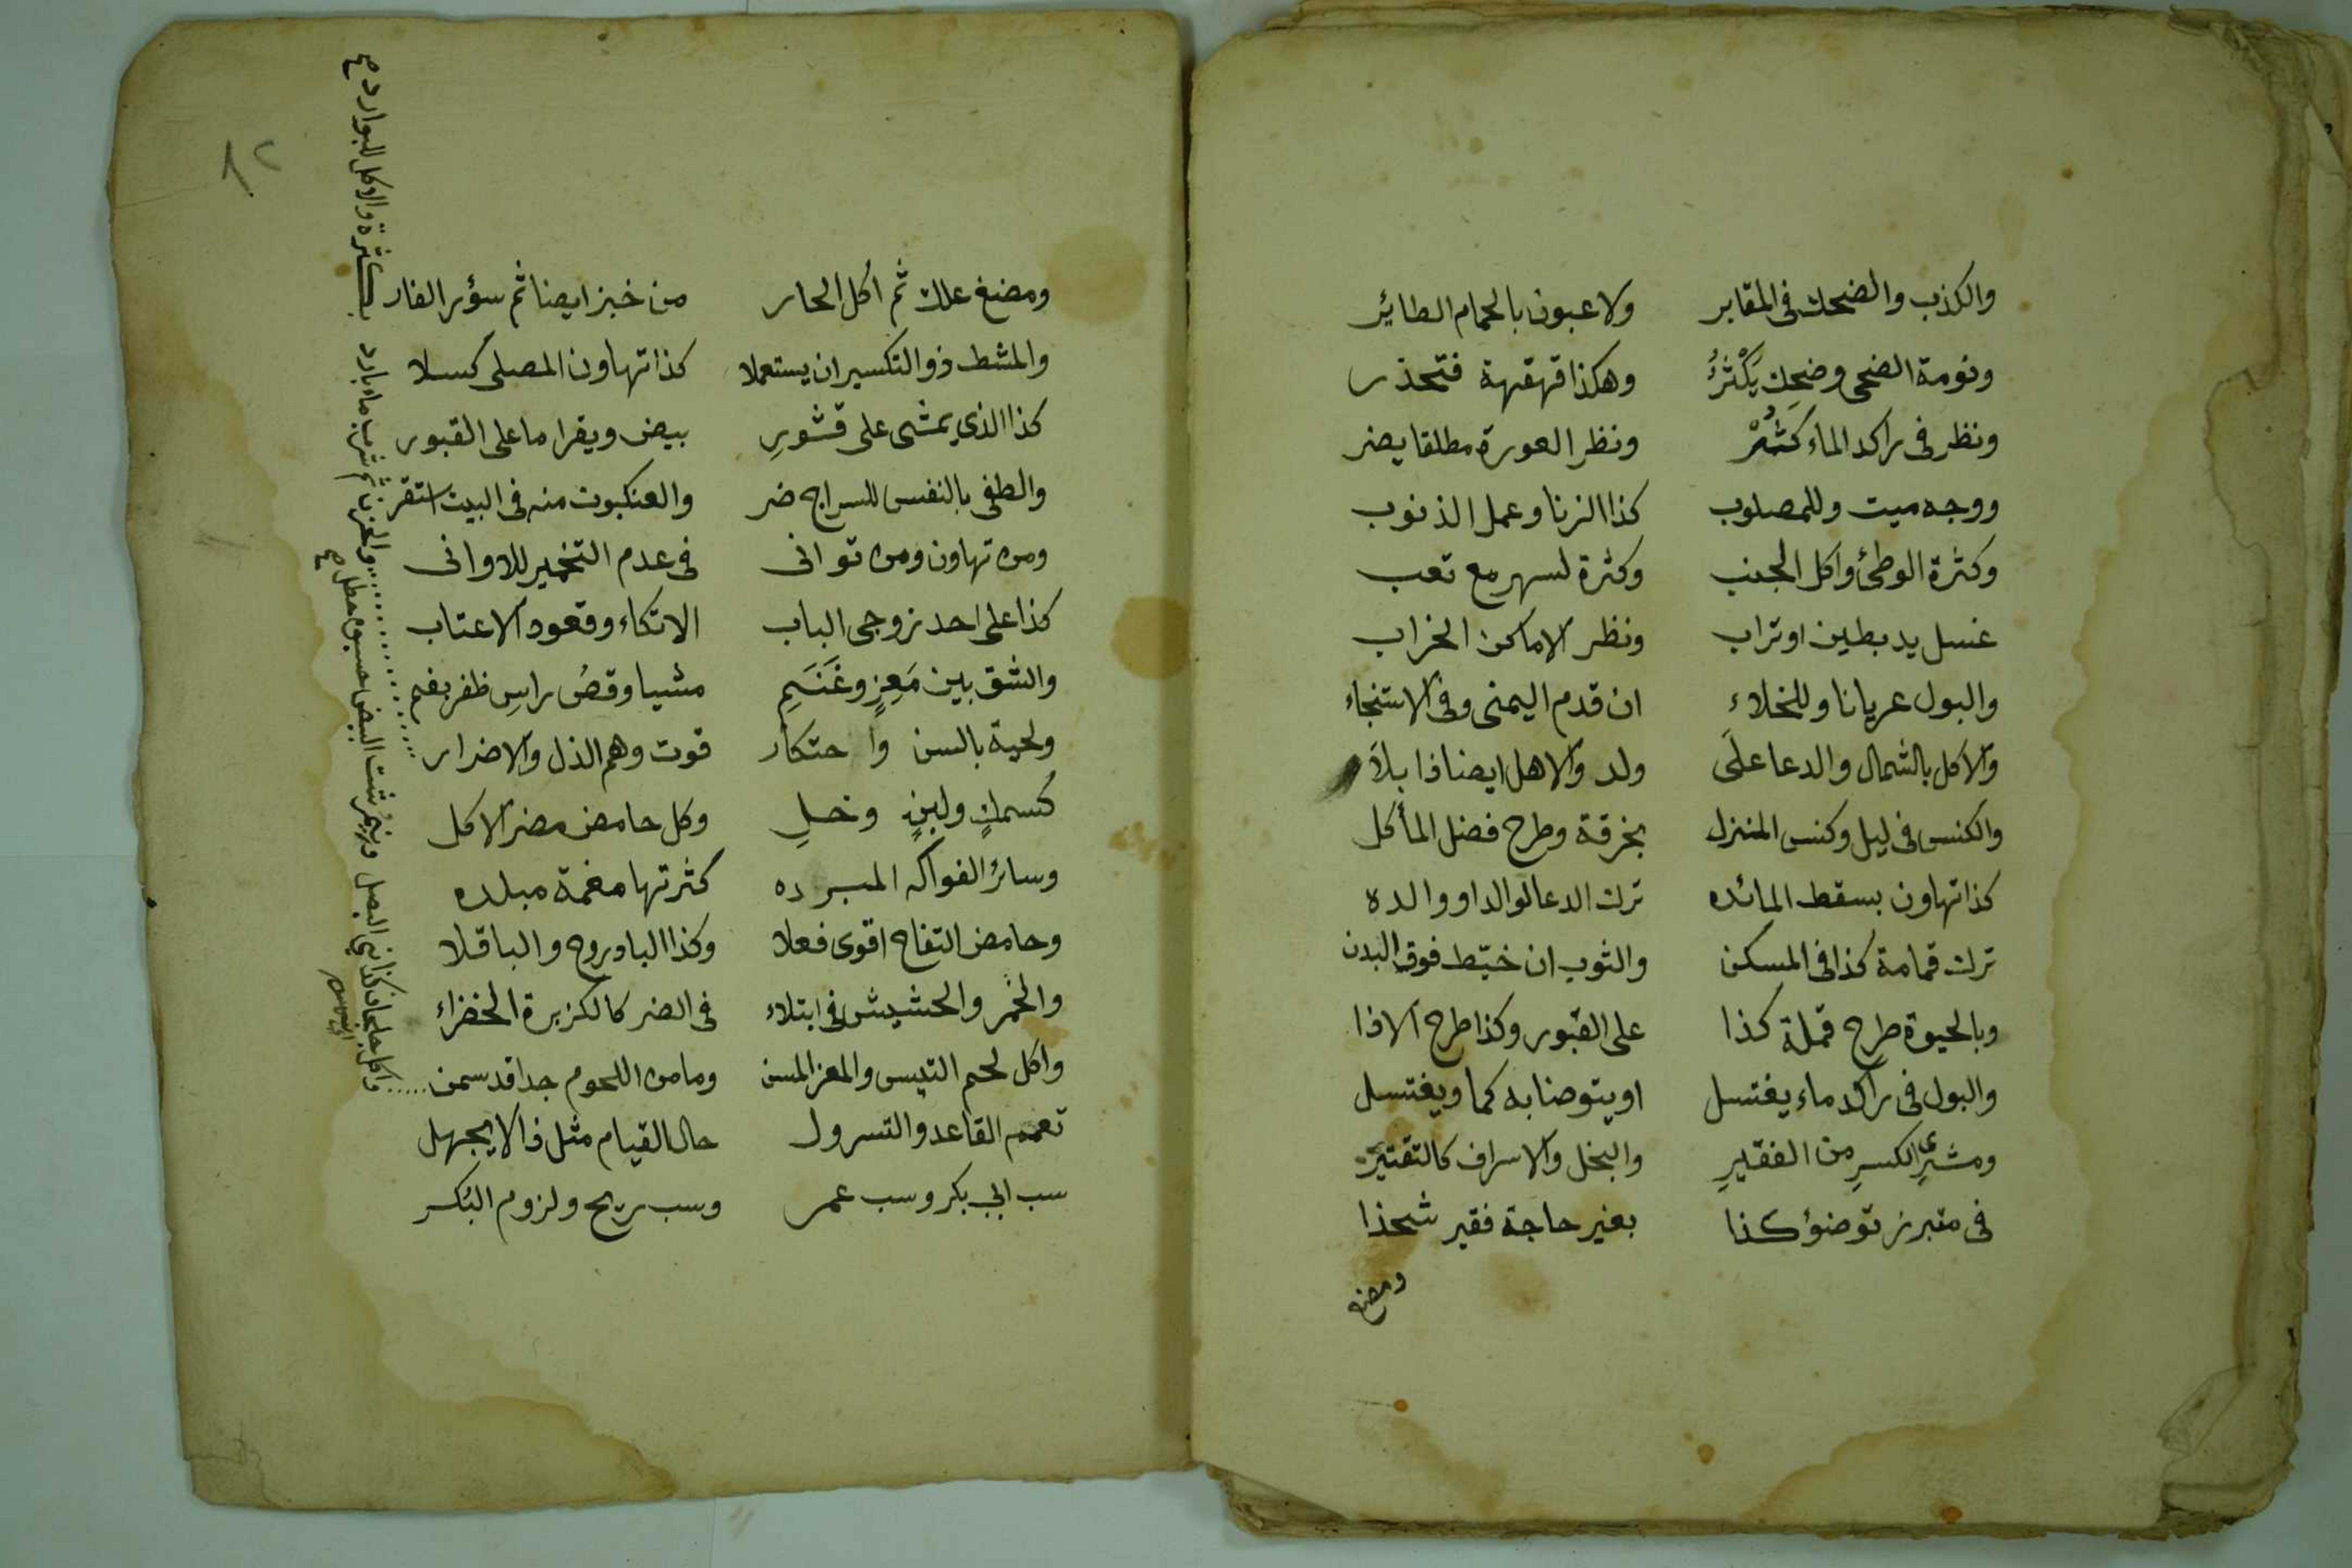 والكذب والضحك في المقابر ولاعبون بالحمام الطائر
ونومة الضحى وضحك يَكْثُرُ وهكذا قهقهة فتحذر
ونظر في راكد الماء كَثُرْ ونظر العورة مطلقا يضر
ووجه ميت وللمصلوب كذا الزنا وعمل الذنوب
وكثرة الوطئ واكل الجنب وكثرة لسهر مع تعب
غسل يد بطين او تراب ونظر الاماكن الخراب
والبول عريانا وللخلاء ان قدم اليمنى وفي الاستنجاء
والاكل بالشمال والدعا على ولد والاهل ايضا ذا بلاَ
والكنس في ليل وكنس المنزل بخرقة وطرح فضل المأكل
كذا تهاون بسقط المائده ترك الدعا لوالد او والده
ترك قمامة كذا في المسكن والثوب ان خيّط فوق البدن
وبالحيوة طرح قملة كذا على القبور وكذا طرح الاذا
والبول في راكد ماء يغتسل او يتوضا به كما ويغتسل
ومشترى الكسرِ من الفقيرِ والبخل والاسراف كالتقتير
في متبرز توضؤ كذا بغير حاجة فقير شحذا
ومضغ
٨٢
ومضغ علك ثم اكل الحار من خبز ايضا ثم سؤر الفار
والمشط ذو التكسير ان يستعملا كذا تهاون المصلى كسلا
كذا الذي يمشى على قشورِ بيض ويقرا ما على القبور
والطفى بالنفس للسراج ضر والعنكبوت منه في البيت استقر
ومن تهاون ومن توانى في عدم التخمير للاوانى
كذا على احد زوجى الباب الاتكاء وقعود الاعتاب
والشق بين مَعِزٍ وغَنَمِ مشيا وقصُ راسِ ظفر بفم
ولحية بالسن وا حتكار قوت وهم الذل والاضرار
كسمكٍ ولبنٍ وخلِ وكل حامض مضر الاكل
وسائر الفواكه المبرده كثرتها مغمة مبلده
وحامض التفاح اقوى فعلا وكذا الباوروج والباقلا
والخمر والحشيش في ابتلاء في الضر كالكزبرة الخضراء
واكل لحم التيس والمعز المسن وما من اللحوم جدا قد سمن
تعمم القاعد والتسرول حال القيام مثل ذا لا يجهل
سب ابي بكر وسب عمر وسب ريح ولزوم البُكر
بكثرة والاكل للبوارد صح
ثم شرب ماء بارد